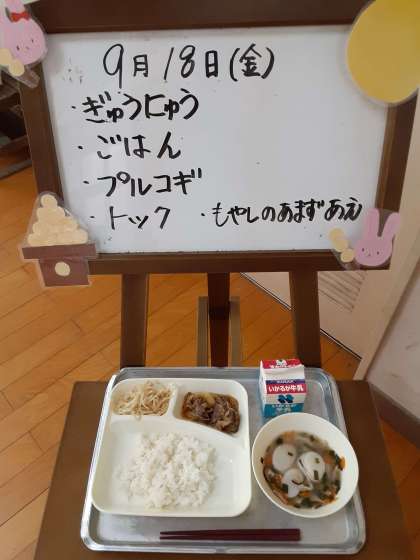 9月18日(金)
・ぎゅうにゅう
・ごはん
・プルコギ
・トック ・もやしのあまずあえ
いかるが牛乳
いかるが
牛乳